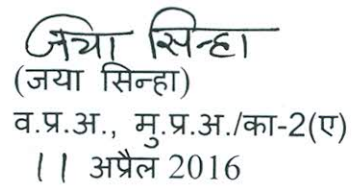 जया सिन्हा
(जया सिन्हा)
व.प्र.अ., मु.प्र.अ./का-2(ए)
11 अप्रैल 2016